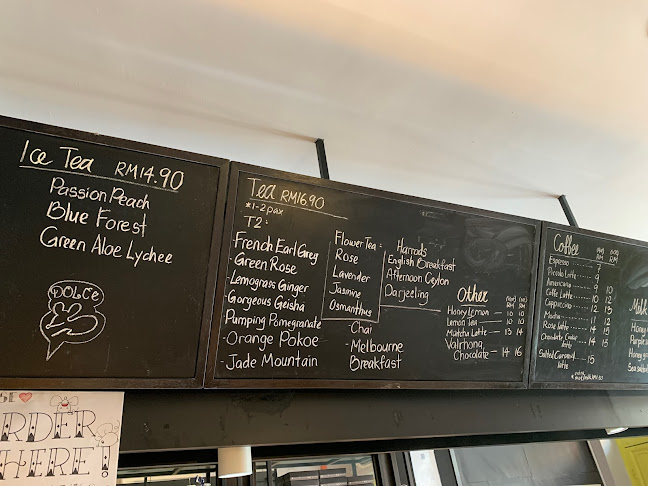 Ice Tea RM14.90
Passion Peach
Blue Forest
Green Aloe Lychee
DOLCE
Tea RM16.90
*1-2 pax
T2:
French Earl Grey
- Green Rose
Lemongrass Ginger
- Gorgeous Geisha
Pumping Pomegranate
- Orange Pokoe
- Jade Mountain
Flower Tea:
Rose
Lavender
Jasmine
Osmanthus
- Chai
- Melbourne
Breakfast
Harrods
English Breakfast
Afternoon Ceylon
Darjeeling
Other (Hot) (Ice)
RM RM
Honey Lemon 10 10
Lemon Tea 10 10
Matcha Latte 13 14
Valrhona
Chocolate 14 16
Coffee (Hot) (Ice)
RM RM
Espresso 7
Piccolo Latte 9
Americano 9 10
Caffe Latte 10 12
Cappuccino 12 13
Mocha 11 12
Rose Latte 14 15
Latte 14 15
Salted Caramel
latte 15
Milk
Honey
Purple
Honey
Sea
SE
RDER
HERE!